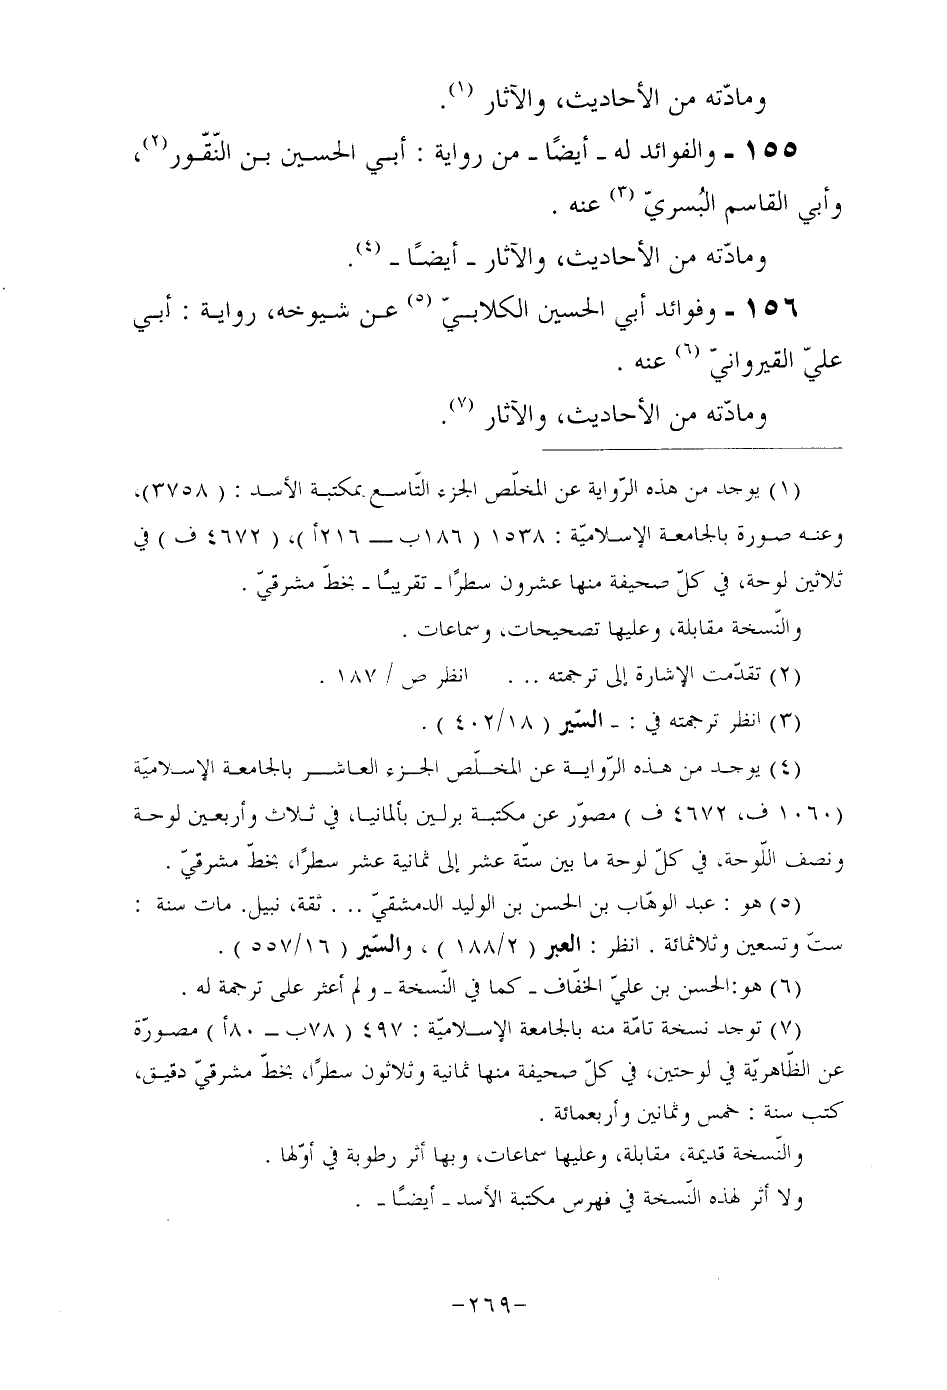 ومادّته من الأحاديث، والآثار (١).
١٥٥ ـ والفوائد له ـ أيضًا ـ من رواية : أبـي الحسـين بـن النّقّـور(٢)،
وأبي القاسم البُسريّ (٣) عنه .
ومادّته من الأحاديث، والآثار ـ أيضًـا ـ (٤).
١٥٦ ـ وفوائد أبي الحسين الكلابـيّ (٥) عـن شـيوخه، روايـة : أبـي
عليّ القيروانيّ (٦) عنه .
ومادّته من الأحاديث، والآثار (٧).
(١) يوجد من هذه الرّواية عن المخلّص الجزء التّاسـع بمكتبـة الأسـد : ( ٣٧٥٨)،
وعنـه صـورة بالجامعـة الإسـلاميّة : ١٥٣٨ ( ١٨٦ب ـــ ٢١٦أ )، ( ٤٦٧٢ ف ) في
ثلاثين لوحة، في كلّ صحيفة منها عشرون سطرًا ـ تقريبًا ـ بخطّ مشرقيّ .
والنّسخة مقابلة، وعليها تصحيحات، وسماعات .
(٢) تقدّمت الإشارة إلى ترجمته .. . انظر ص / ١٨٧ .
(٣) انظر ترجمته في : ـ السّير ( ٤٠٢/١٨ ) .
(٤) يوجـد مـن هـذه الرّوايـة عن المخـلّص الجـزء العاشـر بالجامعـة الإسـلاميّة
(١٠٦٠ ف، ٤٦٧٢ ف ) مصوّر عن مكتبة برلـين بألمانيـا، في ثـلاث وأربعـين لوحـة
ونصف اللّوحة، في كلّ لوحة ما بين ستّة عشر إلى ثمانية عشر سطرًا، بخطّ مشرقيّ .
(٥) هو : عبد الوهّاب بن الحسن بن الوليد الدمشقيّ .. . ثقة، نبيل. مات سنة :
ستّ وتسعين وثلاثمائة . انظر : العبر ( ١٨٨/٢ ) ، والسّير ( ٥٥٧/١٦ ) .
(٦) هو:الحسن بن عليّ الخفّاف ـ كما في النّسخة ـ ولم أعثر على ترجمة له .
(٧) توجد نسخة تامّة منه بالجامعة الإسـلاميّة : ٤٩٧ ( ٧٨ب ـــ ٨٠أ ) مصـورّة
عن الظّاهريّة في لوحتين، في كلّ صحيفة منها ثمانية وثلاثون سطرًا، بخطّ مشرقيّ دقيق،
كتب سنة : خمس وثمانين وأربعمائة .
والنّسخة قديمة، مقابلة، وعليها سماعات، وبها أثر رطوبة في أوّلها .
ولا أثر لهذه النّسخة في فهرس مكتبة الأسد ـ أيضًـا ـ .
-٢٦٩-